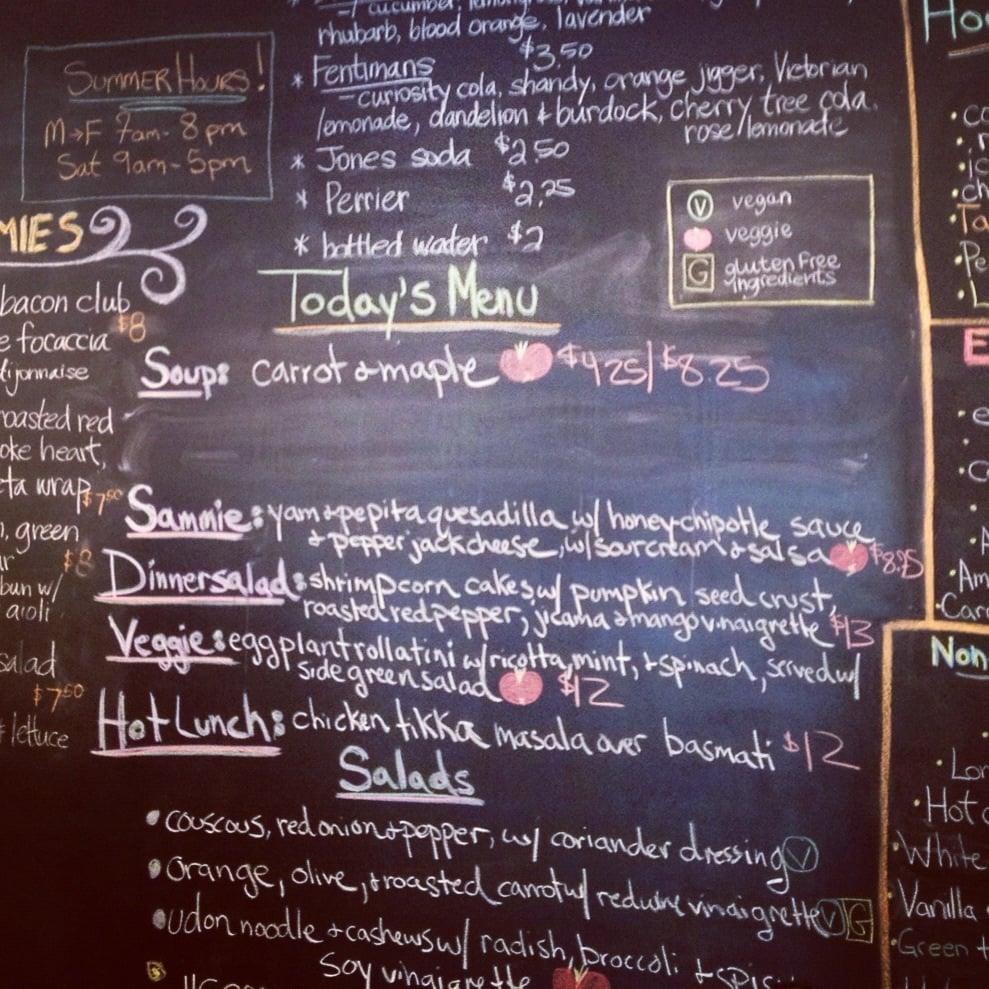 rhubarb, blood orange, lavender
* Fentimans $3.50
- curiosity cola, shandy, orange jigger, Victorian
lemonade, dandelion + burdock, cherry tree cola.
rose lemonade
* Jones soda $2.50
* Perrier $2.25
* bottled water $2
SUMMER HOURS!
M→F 7am-8pm
Sat 9am-5pm
V vegan
veggie
G gluten free
ingredients
Today's Menu
Soup: carrot + maple $4.25/$8.25
Sammie: yam + pepita quesadilla w/ honey-chipotle sauce
+ pepper jack cheese, w/ sour cream + salsa $8.25
Dinner salad: shrimp corn cakes w/ pumpkin seed crust,
roasted red pepper, jicama + mango vinaigrette $13
Veggie: eggplant rollatini w/ ricotta, mint, + spinach, served w/
side green salad $12
Hot Lunch: chicken tikka masala over basmati $12
Salads
• couscous, red onion + pepper, w/ coriander dressing V
• orange, olive, + roasted carrot w/ red wine vinaigrette V G
• udon noodle + cashews w/ radish, broccoli +
soy vinaigrette
MIES
bacon club
$8
focaccia
roasted red
heart,
wrap $7.50
green
$8
bun w/
aioli
salad
$7.50
lettuce
Non
Hot
White
Vanilla
Green